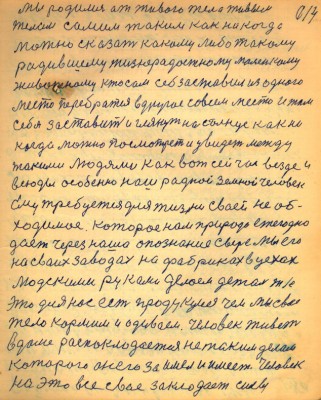 0/4
Мы родимся от живого тела живым
телом самим таким как никогда
можно сказать какому либо такому
родившему жизнерадостному маленькому
животному кто сам себ заставил из одного
место перебратя вдругое совсем место и там
себя заставит и глянут на солнце как ни
когда можно посмотрет и увидет между
такими людями как вот сей час везде и
всюды особенно наш радной земной человек
Ему требуется для жизни своей не об-
ходимое, которое нам природа ежегодно
дает через нашо опознание сырье мы его
на своих заводах на фабриках в цехах
людскими руками делаем детал
Это для нас ест продукция чем мы свое
тело кормим и одиваем. Человек живет
в доме распоклодается не таким делом
которого он его за имел и имеет Человек
на это все свое закладает силы